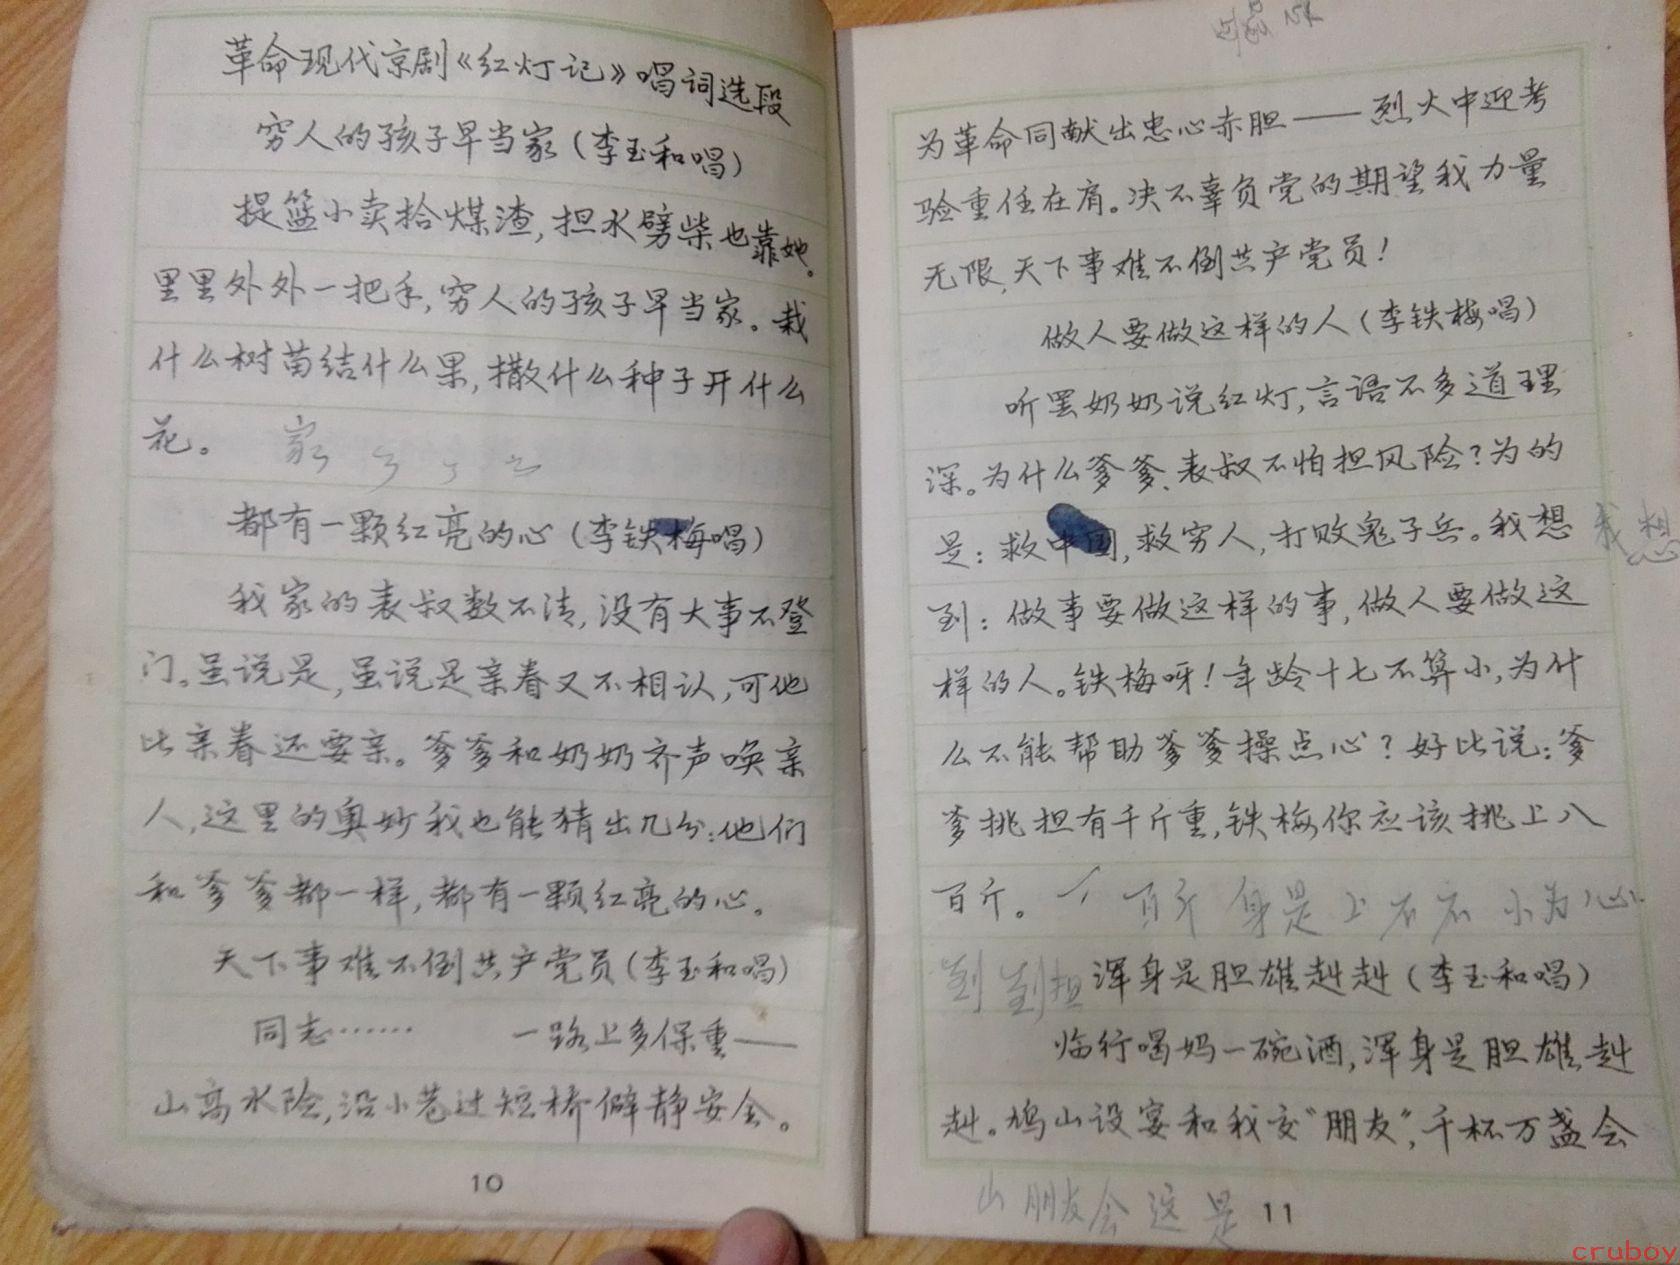 革命现代京剧《红灯记》唱词选段
穷人的孩子早当家(李玉和唱)
提篮小卖拾煤渣,担水劈柴也靠她。
里里外外一把手,穷人的孩子早当家。栽
什么树苗结什么果,撒什么种子开什么
花。 家
都有一颗红亮的心(李铁梅唱)
我家的表叔数不清,没有大事不登
门。虽说是,虽说是亲眷又不相认,可他
比亲眷还要亲。爹爹和奶奶齐声唤亲
人,这里的奥妙我也能猜出几分:他们
和爹爹都一样,都有一颗红亮的心。
天下事难不倒共产党员(李玉和唱)
同志…… 一路上多保重——
山高水险,沿小巷过短桥僻静安全。
10
为革命同献出忠心赤胆——烈火中迎考
验重任在肩。决不辜负党的期望我力量
无限,天下事难不倒共产党员!
做人要做这样的人(李铁梅唱)
听罢奶奶说红灯,言语不多道理
深。为什么爹爹、表叔不怕担风险?为的
是:救中国,救穷人,打败鬼子兵。我想 我想
到:做事要做这样的事,做人要做这
样的人。铁梅呀!年龄十七不算小,为什
么不能帮助爹爹操点心?好比说:爹
爹挑担有千斤重,铁梅你应该挑上八
百斤。 百斤 身是上 不不 小为心
到到担 浑身是胆雄赳赳(李玉和唱)
临行喝妈一碗酒,浑身是胆雄赳
赳。鸠山设宴和我交“朋友”,千杯万盏会
山朋友会这是
11
cruboy